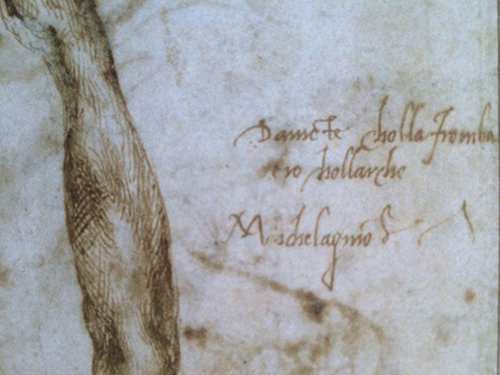 Davicte cholla fromba
e io chollarcho
Michelagnio